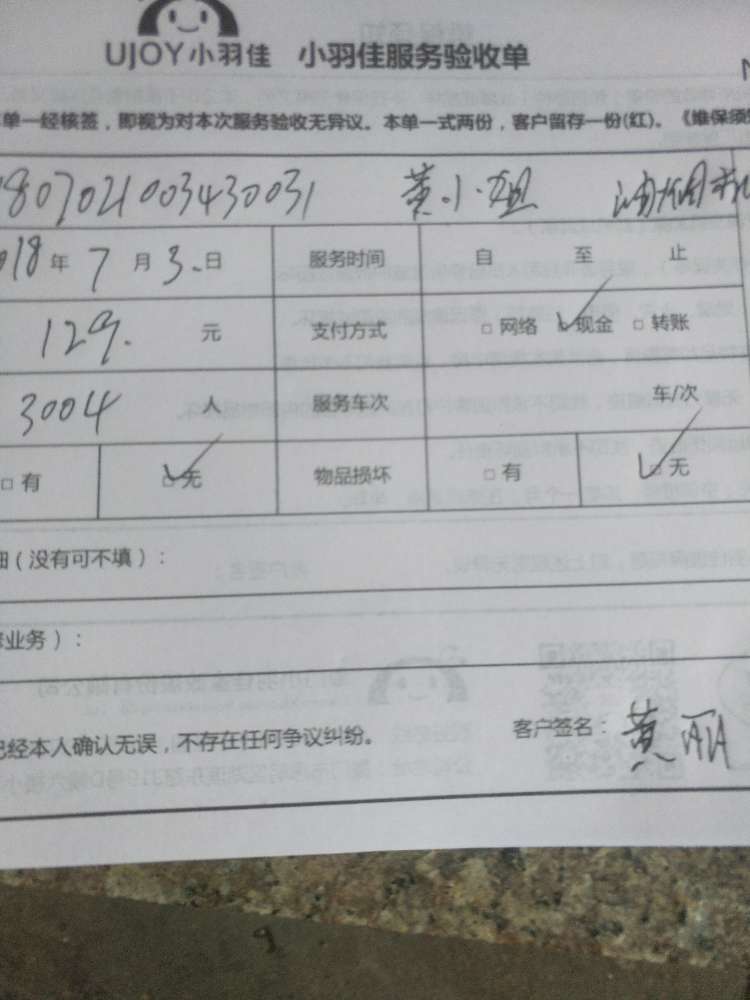 UJOY小羽佳 小羽佳服务验收单
单一经核签，即视为对本次服务验收无异议。本单一式两份，客户留存一份(红)。《维保须知
1807021003430031 黄小姐 油烟机
2018年7月3日 服务时间 自 至 止
129. 元 支付方式 □网络 ☑现金 □转账
3004 人 服务车次 车/次
□有 ☑无 物品损坏 □有 ☑无
细（没有可不填）：
业务）：
已经本人确认无误，不存在任何争议纠纷。 客户签名：黄